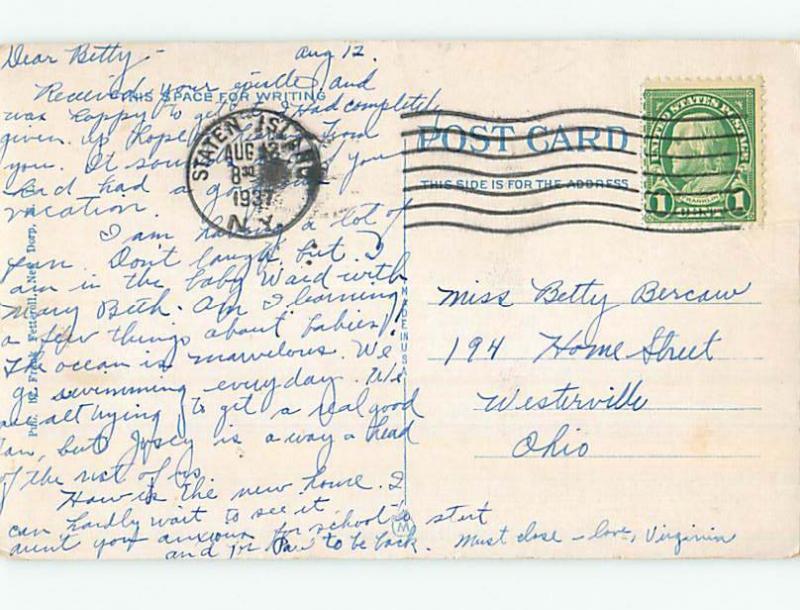 Dear Betty - Aug 12.
Received your epistle and
THIS SPACE FOR WRITING
was happy to get it. I Had completely
given up hope from
you. It sounds as if you
and had a good
vacation.
I am having a lot of
fun. Don't laugh, but I
am in the baby Ward with
Mary Beth. Am I learning
a few things about babies!
The ocean is marvelous. We
go swimming everyday. We
are all trying to get a real good
tan, but Josey is a way a head
of the rest of us.
How is the new house. I
can hardly wait to see it.
aunt you anxious for school to start
and I'm to be back. Must close - love, Virginia
STATEN ISLAND
AUG 12
8 30
1937
N.Y.
POST CARD
THIS SIDE IS FOR THE ADDRESS
UNITED STATES POSTAGE
FRANKLIN
1 CENT 1
MADE IN U.S.A.
Miss Betty Bercaw
194 Home Street
Westerville
Ohio
Pub. by Frank Fetteroll, New Dorp,